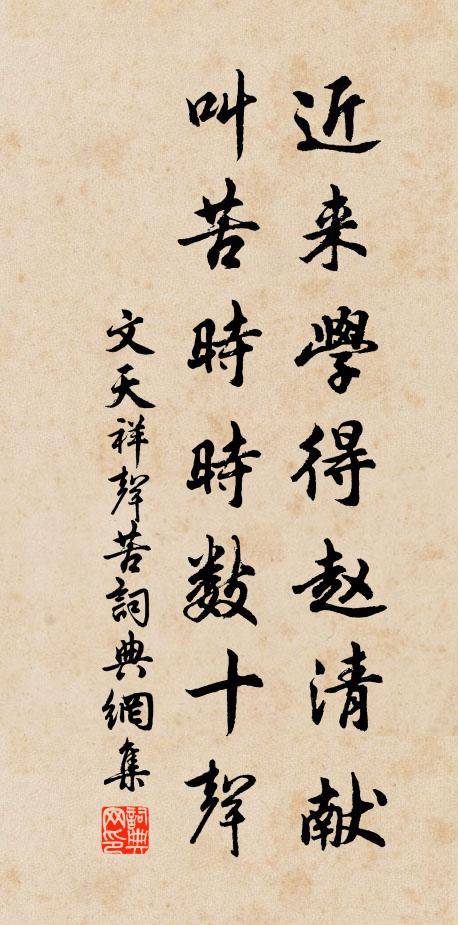 近来學得赵清献
叫苦時時數十聲
文天祥聲苦詞典網集
詞典
网印